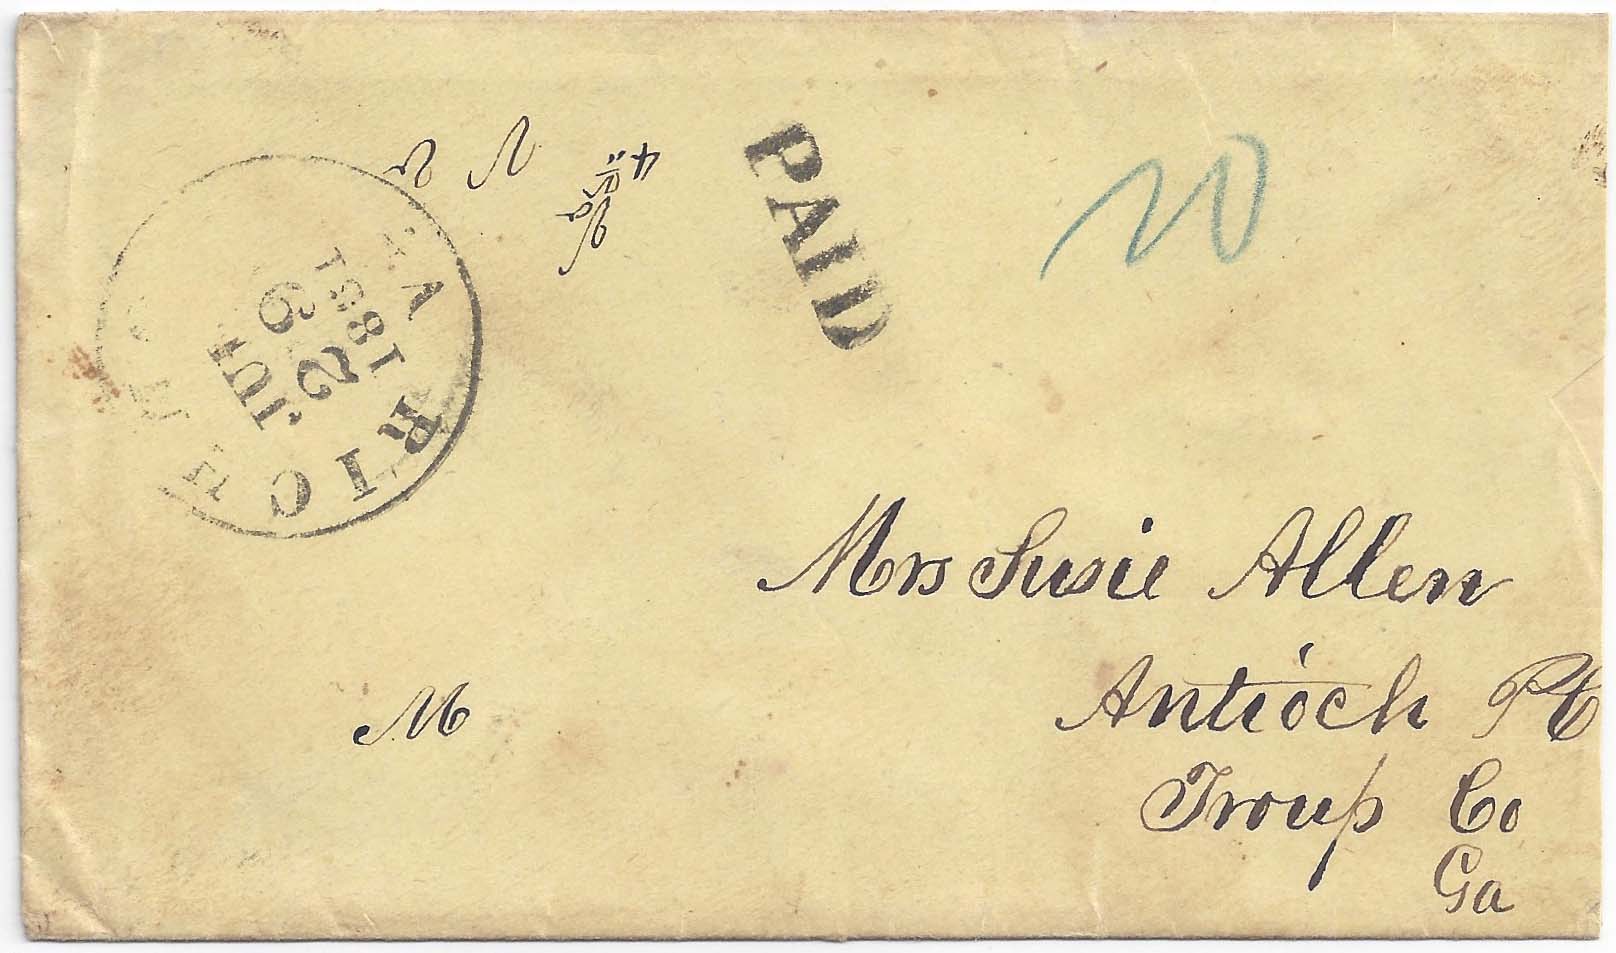 RICHMOND VA
JUL
1861
PAID
20
Mrs Susie Allen
Antioch PO
Troup Co
Ga
M